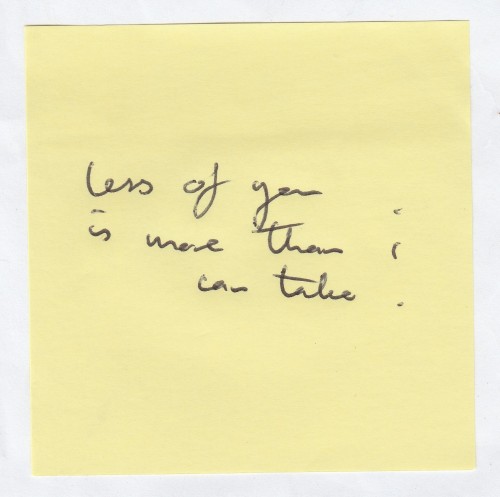 less of you
is more than i
can take.